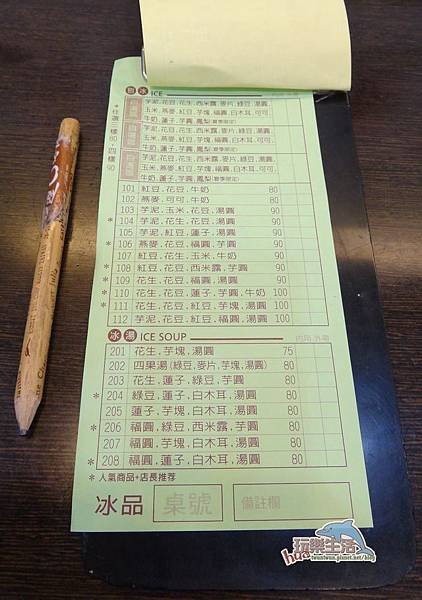 刨冰 ICE 內用 外帶
＊任選三樣80，四樣90
芋泥,花豆,花生,西米露,麥片,綠豆,湯圓
玉米,燕麥,紅豆,芋塊,福圓,白木耳,可可,
牛奶,蓮子,芋圓,鳳梨(夏季限定)
芋泥,花豆,花生,西米露,麥片,綠豆,湯圓
玉米,燕麥,紅豆,芋塊,福圓,白木耳,可可,
牛奶,蓮子,芋圓,鳳梨(夏季限定)
芋泥,花豆,花生,西米露,麥片,綠豆,湯圓
玉米,燕麥,紅豆,芋塊,福圓,白木耳,可可,
牛奶,蓮子,芋圓,鳳梨(夏季限定)
101 紅豆,花豆,牛奶 80
102 燕麥,可可,牛奶 80
103 芋泥,玉米,花豆,湯圓 90
＊ 104 芋泥,花生,花豆,湯圓 90
105 芋泥,紅豆,蓮子,湯圓 90
＊ 106 燕麥,花豆,福圓,芋圓 90
107 紅豆,花生,玉米,牛奶 90
＊ 108 紅豆,花豆,西米露,芋圓 90
＊ 109 花生,花豆,福圓,湯圓 90
＊ 110 花豆,蓮子,芋圓,牛奶 100
＊ 111 花生,花豆,紅豆,芋塊,湯圓 100
112 芋泥,花豆,紅豆,福圓,湯圓 100
冰湯 ICE SOUP 內用 外帶
201 花生,芋塊,湯圓 75
202 四果湯(綠豆,麥片,芋塊,湯圓) 80
203 花生,蓮子,綠豆,芋圓 80
＊ 204 綠豆,蓮子,白木耳,湯圓 80
205 蓮子,芋塊,白木耳,湯圓 80
＊ 206 福圓,綠豆,西米露,芋圓 80
207 福圓,芋塊,白木耳,湯圓 80
＊ 208 福圓,蓮子,白木耳,湯圓 80
＊人氣商品+店長推荐
冰品 桌號 備註欄
hua玩樂生活
twantwan.pixnet.net/blog